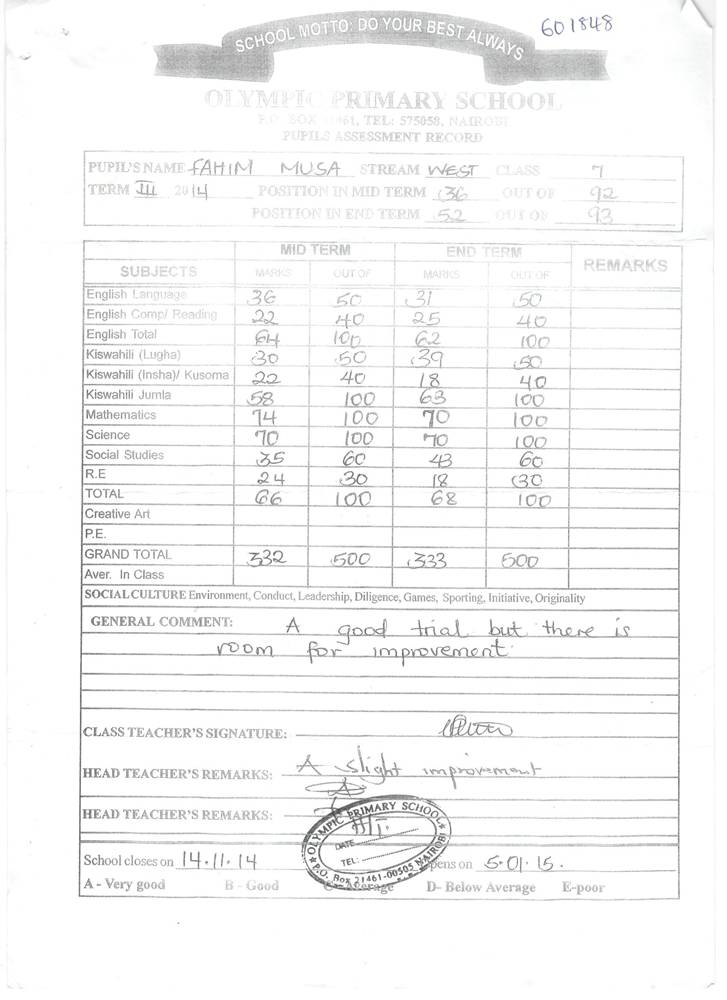 SCHOOL MOTTO: DO YOUR BEST ALWAYS
601848
OLYMPIC PRIMARY SCHOOL
P.O. BOX 21461, TEL: 575058, NAIROBI
PUPILS ASSESSMENT RECORD
PUPIL'S NAME FAHIM MUSA STREAM WEST CLASS 7
TERM III 2014 POSITION IN MID TERM 36 OUT OF 92
POSITION IN END TERM 52 OUT OF 93
MID TERM END TERM REMARKS
SUBJECTS MARKS OUT OF MARKS OUT OF
English Language 36 50 31 50
English Comp/ Reading 22 40 25 40
English Total 64 100 62 100
Kiswahili (Lugha) 30 50 39 50
Kiswahili (Insha)/ Kusoma 22 40 18 40
Kiswahili Jumla 58 100 63 100
Mathematics 74 100 70 100
Science 70 100 70 100
Social Studies 35 60 43 60
R.E 24 30 18 30
TOTAL 66 100 68 100
Creative Art
P.E.
GRAND TOTAL 332 500 333 500
Aver. In Class
SOCIAL CULTURE Environment, Conduct, Leadership, Diligence, Games, Sporting, Initiative, Originality
GENERAL COMMENT: A good trial but there is
room for improvement.
CLASS TEACHER'S SIGNATURE:
HEAD TEACHER'S REMARKS: A slight improvement
HEAD TEACHER'S REMARKS:
OLYMPIC PRIMARY SCHOOL
DATE
TEL:
P.O. Box 21461-00505 NAIROBI
School closes on 14.11.14 pens on 5.01.15.
A - Very good B - Good C - Average D- Below Average E-poor